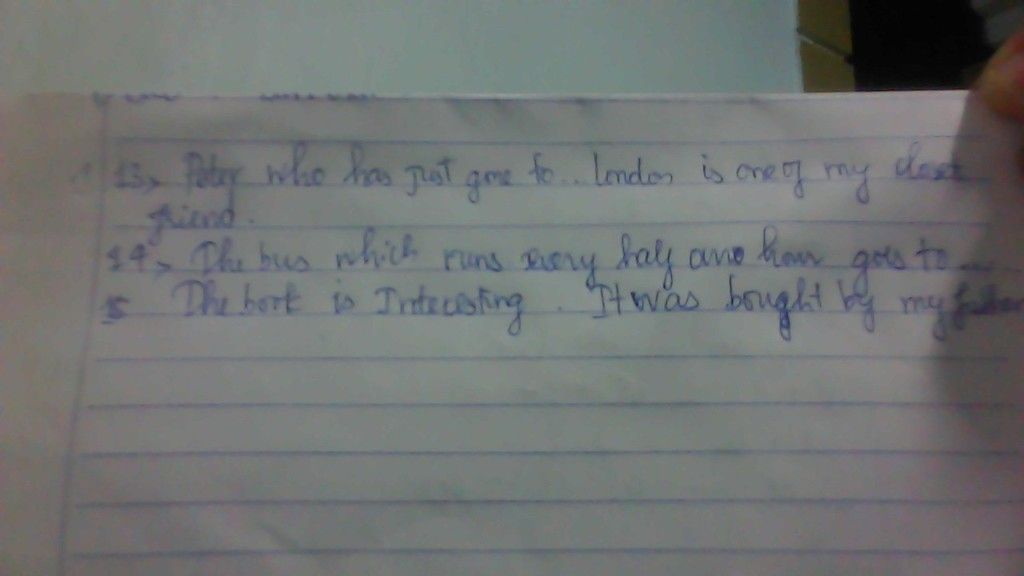 13, Peter who has just gone to.. London is one of my closet
friend.
14, The bus which runs every half and hour goes to ...
15 The book is Interesting. It was bought by my father